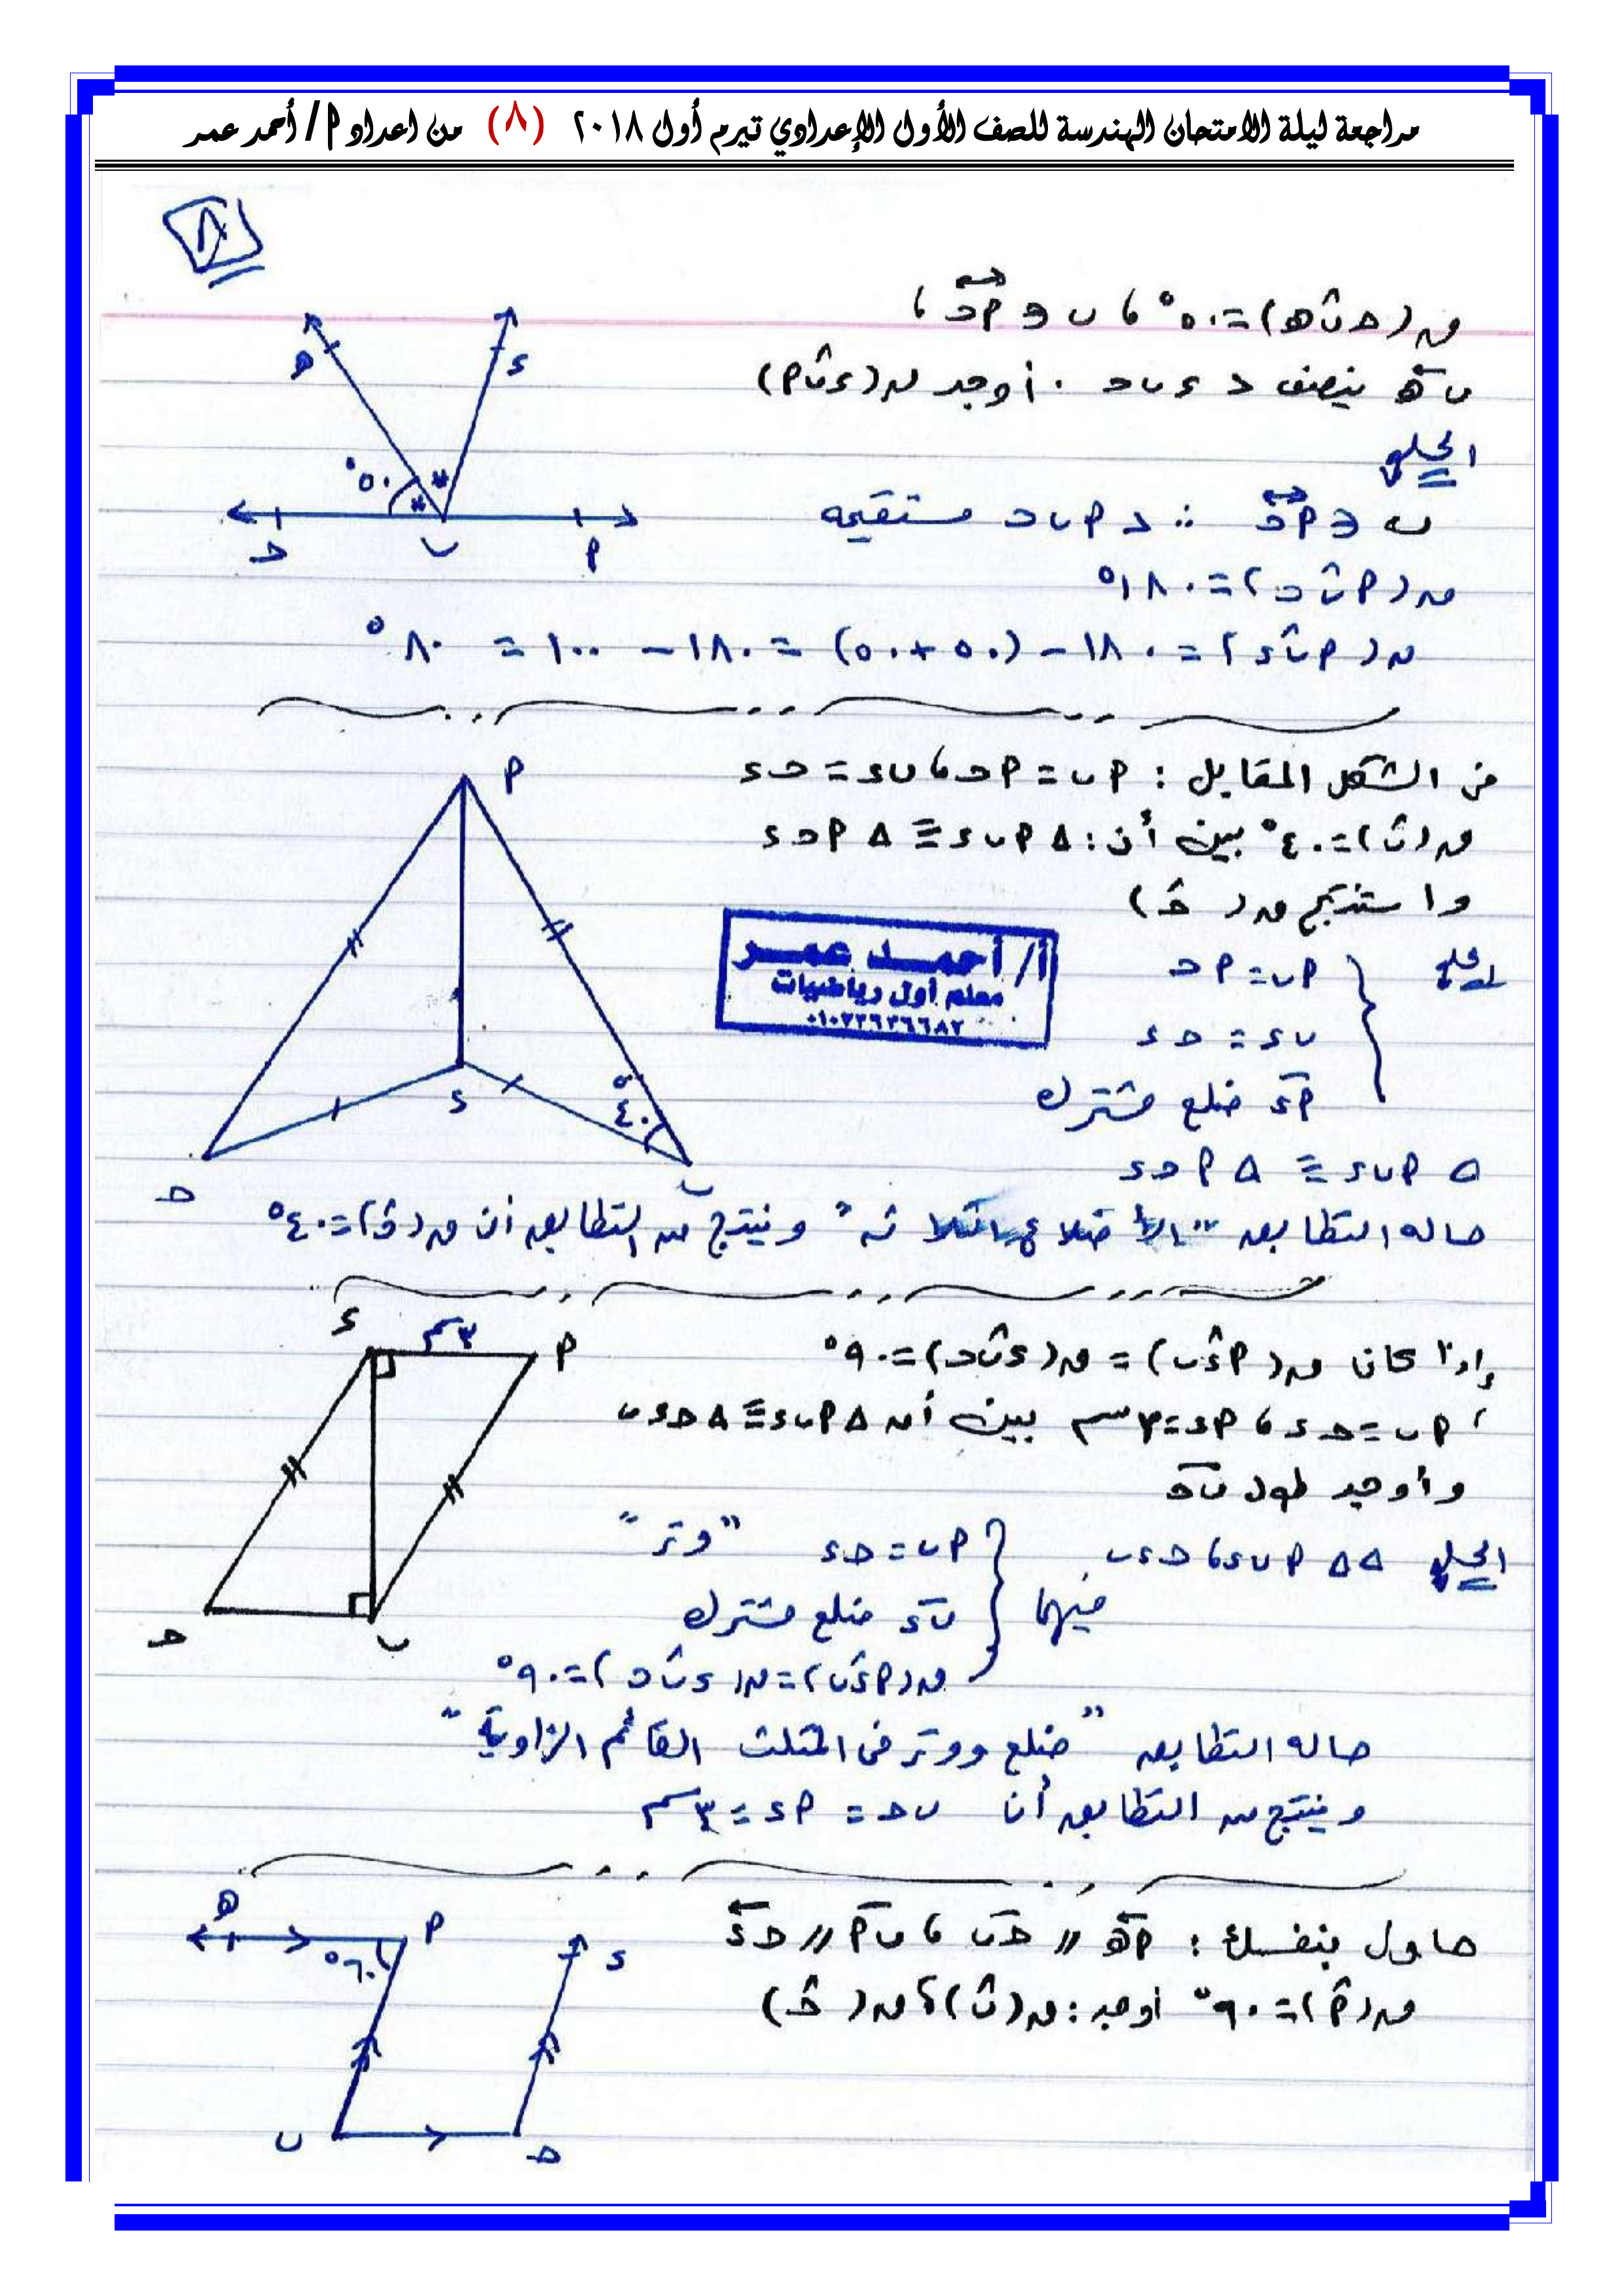 مراجعة ليلة الامتحان الهندسة للصف الأول الإعدادي تيرم أول ٢٠١٨ (٨) من اعداد أ/ أحمد عمر
٨
ق(حـ ب هـ) = ٥٠° ، ب ∈ أحـ ،
ب هـ ينصف د ء ب حـ . أوجد ق(ء ب أ)
الحل
ب ∈ أحـ ∴ د أ ب حـ مستقيمه
ق(أ ب حـ) = ١٨٠°
ق(أ ب ء) = ١٨٠ − (٥٠ + ٥٠) = ١٨٠ − ١٠٠ = ٨٠°
هـ
ء
٥٠°
حـ
ب
أ
من الشكل المقابل : أ ب = أ حـ ، ب ء = حـ ء
ق(ب) = ٤٠° بين أن : Δ أ ب ء ≡ Δ أ حـ ء
واستنتج ق(حـ)
الحل
أ ب = أ حـ
ب ء = حـ ء
أء ضلع مشترك
Δ أ ب ء ≡ Δ أ حـ ء
حاله التطابق " وينتج من التطابق أن ق(حـ) = ٤٠°
أ
ء
٤٠°
حـ
ب
أ/ أحمد عمر
معلم أول رياضيات
إذا كان ق(أ ء ب) = ق(ء ب حـ) = ٩٠°
، أ ب = حـ ء ، أء = ٣سم بين أن Δ أ ب ء ≡ Δ حـ ء ب
وأوجد طول ب حـ
الحل ΔΔ أ ب ء ، حـ ء ب
فيهما
أ ب = حـ ء "وتر"
ب ء ضلع مشترك
ق(أ ء ب) = ق(ء ب حـ) = ٩٠°
حاله التطابق "ضلع ووتر فى المثلث القائم الزاوية"
وينتج من التطابق أن ب حـ = أء = ٣سم
ء
٣سم
أ
حـ
ب
حاول بنفسك : أهـ // حـ ب ، ب أ // حـ ء
ق(أ) = ٦٠° أوجد : ق(ب) ، ق(حـ)
هـ
أ
٦٠°
ء
ب
حـ